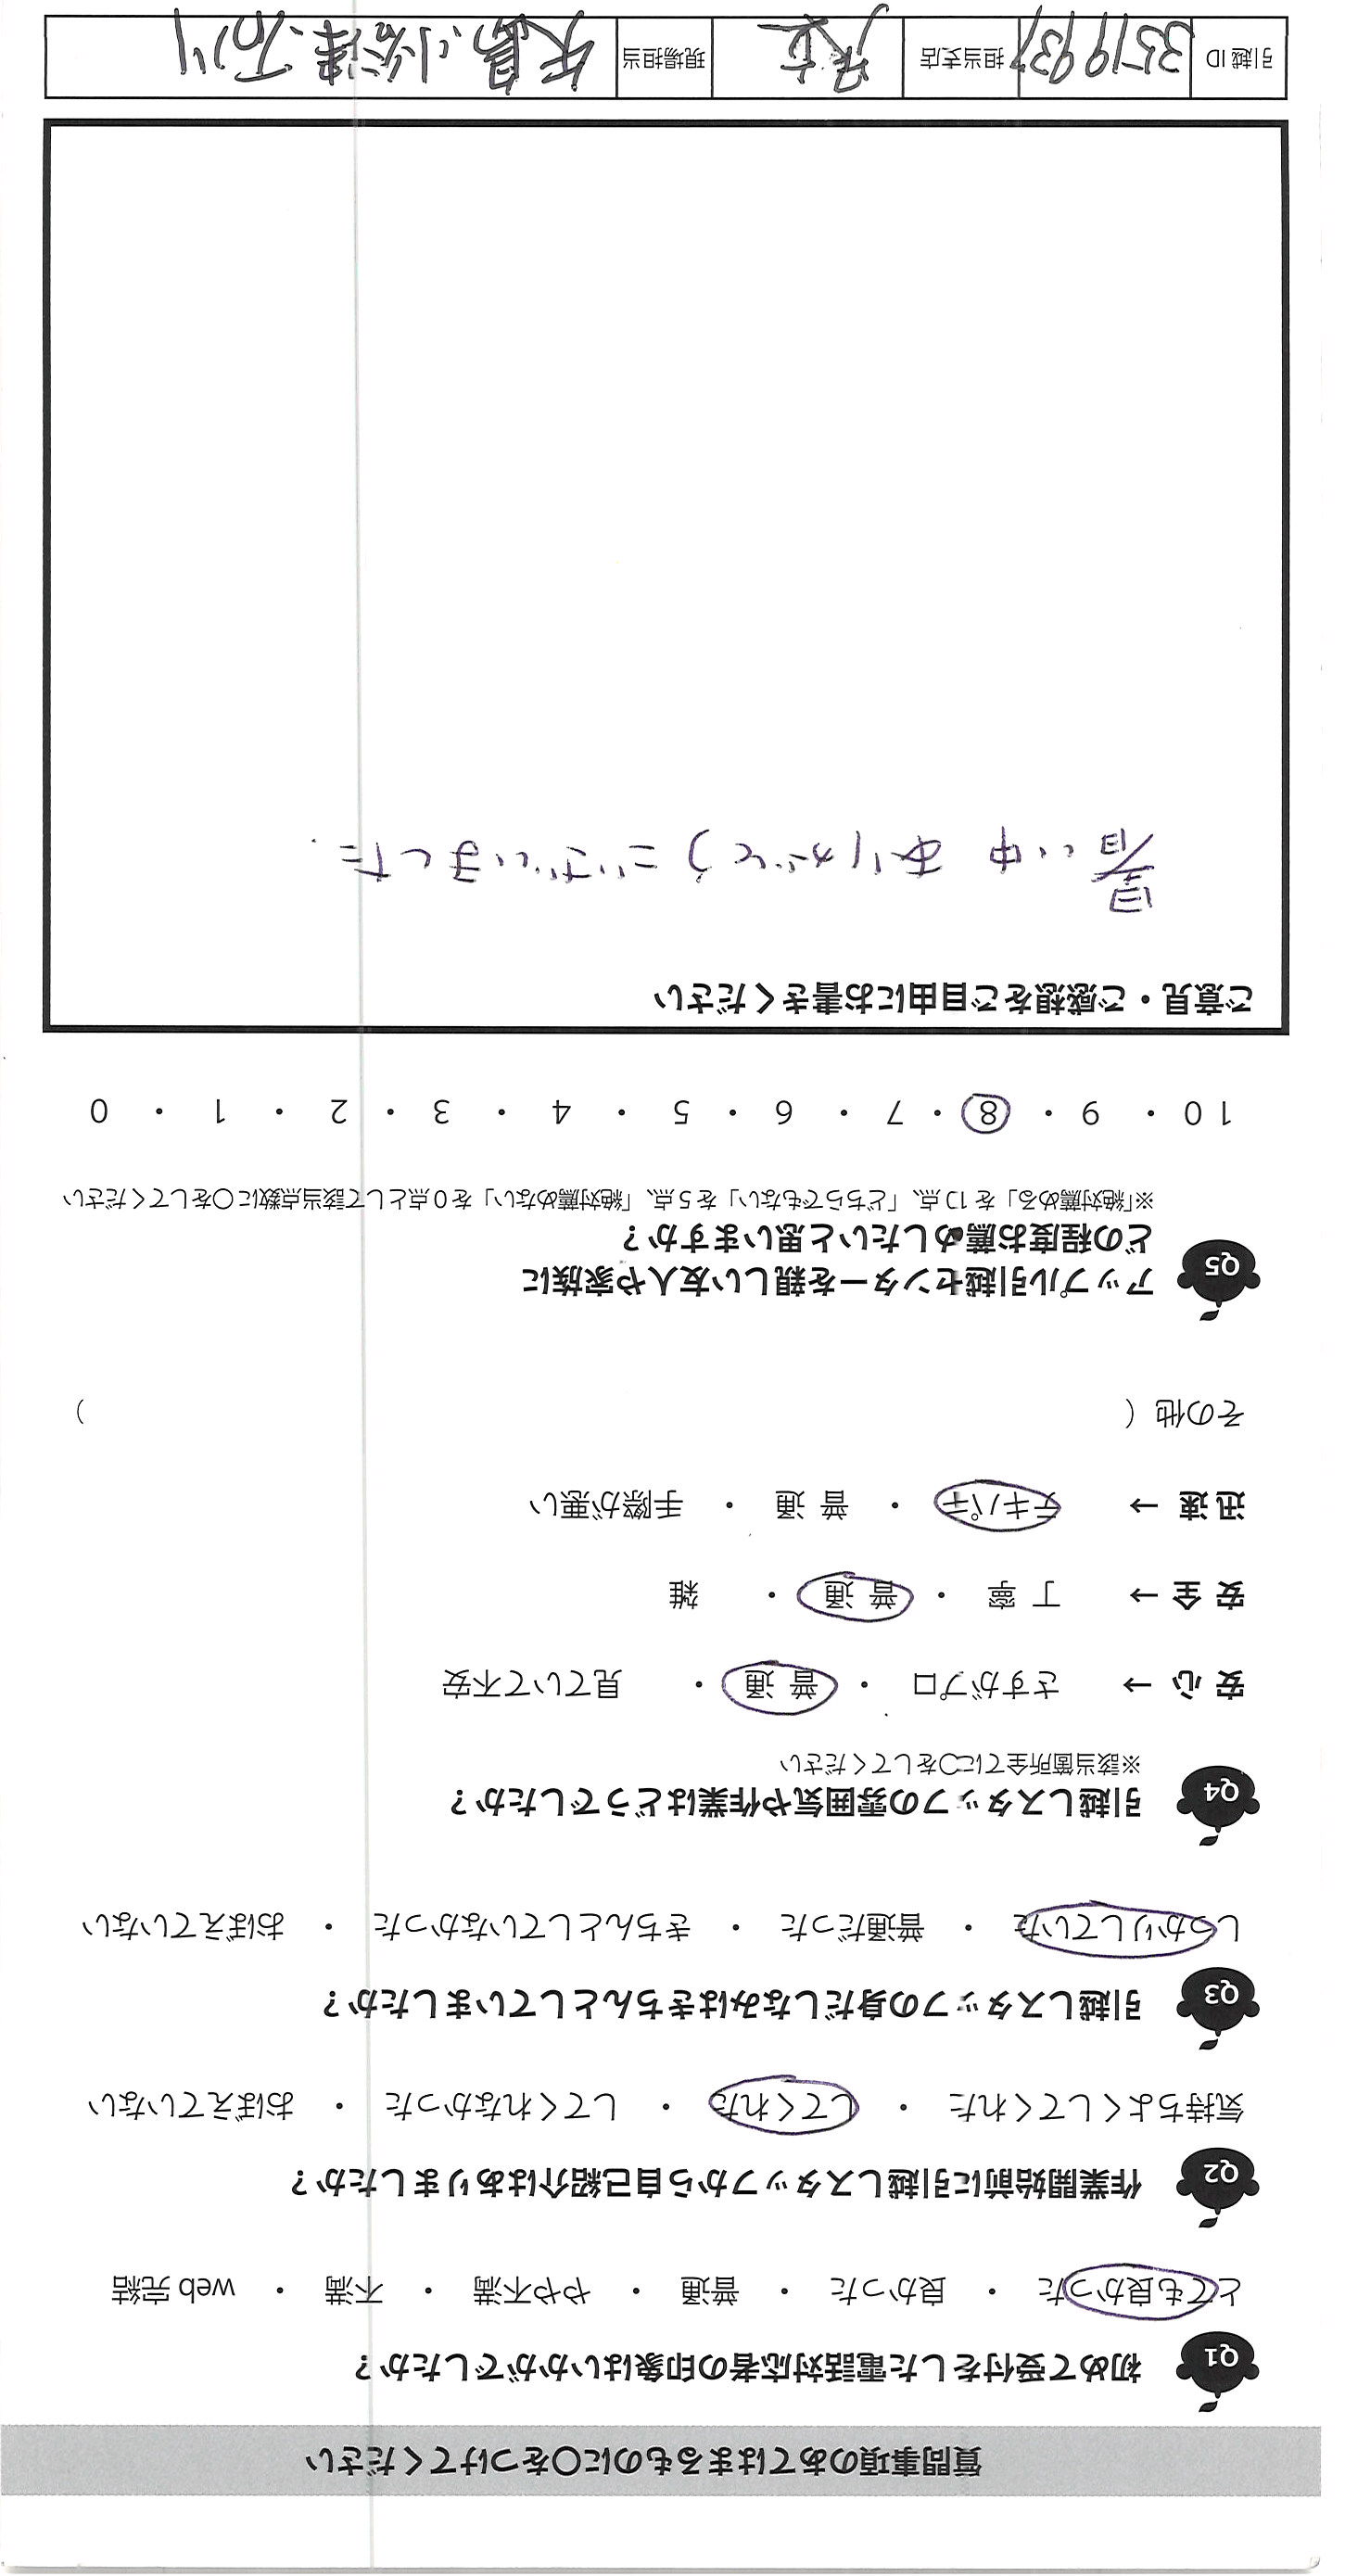 質問事項のあてはまるものに〇をつけてください
Q1 初めて受付をした電話対応者の印象はいかがでしたか？
とても良かった ・ 良かった ・ 普通 ・ やや不満 ・ 不満 ・ web完結
Q2 作業開始前に引越しスタッフから自己紹介はありましたか？
気持ちよくしてくれた ・ してくれた ・ してくれなかった ・ おぼえていない
Q3 引越しスタッフの身だしなみはきちんとしていましたか？
しっかりしていた ・ 普通だった ・ きちんとしていなかった ・ おぼえていない
Q4 引越しスタッフの雰囲気や作業はどうでしたか？
※該当箇所全てに〇をしてください
安心→ さすがプロ ・ 普通 ・ 見ていて不安
安全→ 丁寧 ・ 普通 ・ 雑
迅速→ テキパキ ・ 普通 ・ 手際が悪い
その他（ ）
Q5 アップル引越センターを親しい友人や家族に
どの程度お薦めしたいと思いますか？
※「絶対薦める」を10点、「どちらでもない」を5点、「絶対薦めない」を0点として該当点数に〇をしてください
10 ・ 9 ・ 8 ・ 7 ・ 6 ・ 5 ・ 4 ・ 3 ・ 2 ・ 1 ・ 0
ご意見・ご感想をご自由にお書きください
暑い中 ありがとうございました.
引越ID 3519937 担当支店 現場担当 矢島、小谷津、石川